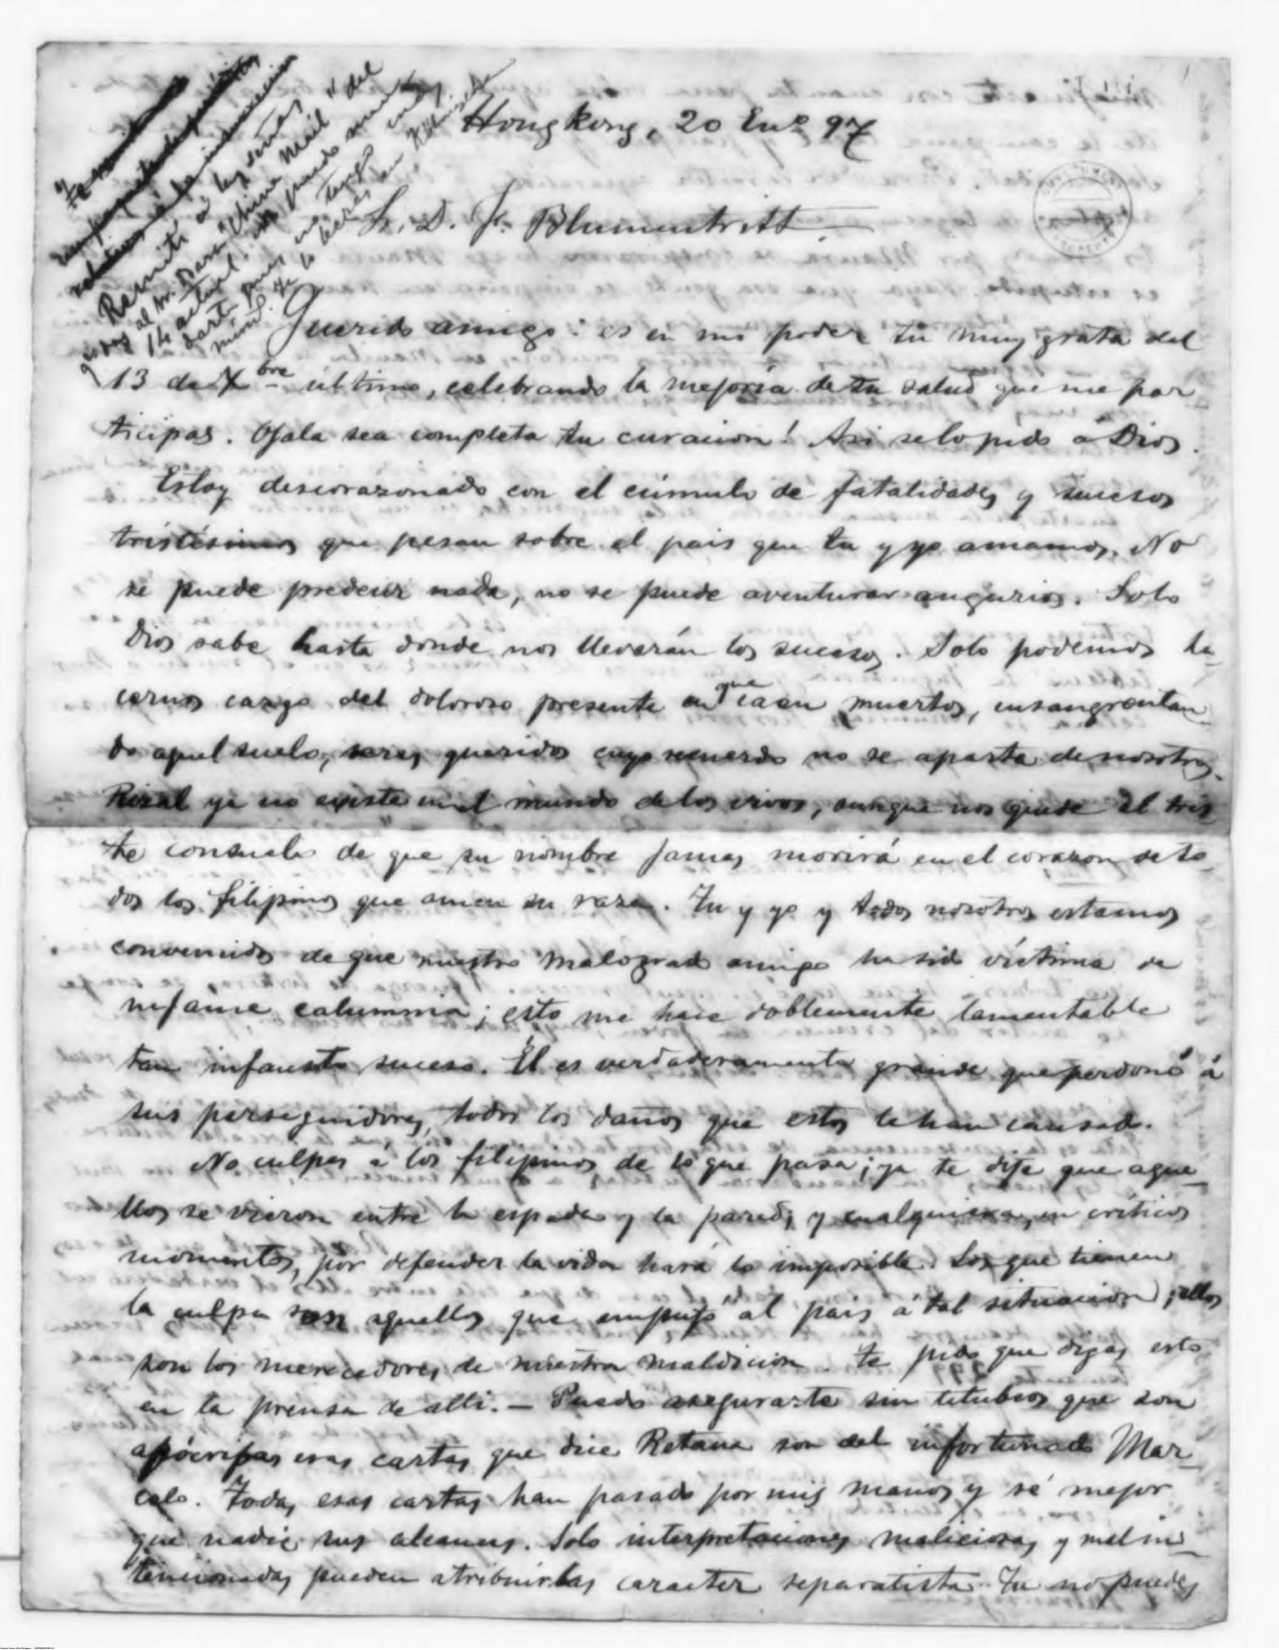 Hongkong, 20 Eno 97
Sr. D. F. Blumentritt
Remití a
al Mr. China Mail del
14 actual
Querido amigo: es en mi poder tu muy grata del
13 de Xbre último, celebrando la mejoría de tu salud que me par
ticipas. Ojala sea completa tu curacion! Asi se lo pido á Dios.
Estoy descorazonado con el cúmulo de fatalidades y sucesos
tristísimos que pesan sobre el pais que tu y yo amamos. No
se puede predecir nada, no se puede aventurar augurios. Solo
Dios sabe hasta donde nos llevarán los sucesos. Solo podemos ha
cernos cargo del doloroso presente en que caen muertos, ensangrentan
do aquel suelo, seres queridos cuyo recuerdo no se aparta de nosotros.
Rizal ya no existe en el mundo de los vivos, aunque nos quede el tris
te consuelo de que su nombre jamas morirá en el corazon de to
dos los filipinos que amen su raza. Tu y yo y todos nosotros estamos
convencidos de que nuestro malogrado amigo ha sido víctima de
infame calumnia; esto me hace doblemente lamentable
tan infausto suceso. Él es verdaderamente grande que perdonó á
sus perseguidores, todos los daños que estos le han causado.
No culpes á los filipinos de lo que pasa; ya te dije que aque-
llos se vieron entre la espada y la pared, y cualquiera, en criticos
momentos, por defender la vida hará lo imposible. Los que tienen
la culpa son aquellos que empujó al pais á tal situacion; ellos
son los merecedores de nuestra maldicion. te pido que digas esto
en la prensa de alli. — Puedo asegurarte sin titubeos que son
apócrifas esas cartas que dice Retana son del infortunado Mar-
celo. Todas esas cartas han pasado por mis manos y sé mejor
que nadie sus alcances. Solo interpretaciones maliciosas y mal in-
tencionadas pueden atribuirlas caracter separatista. Tu no puedes